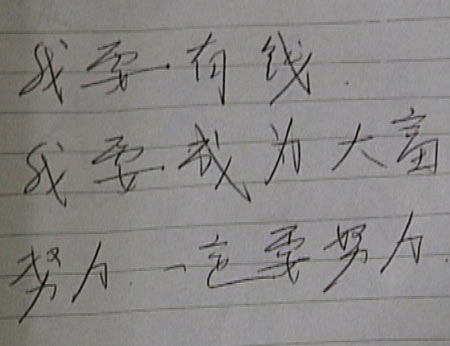 我要有钱.
我要成为大富
努力.一定要努力.